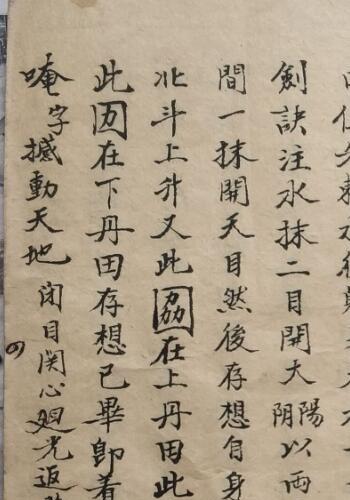 劍訣注水抹二目開天陽陰以両
間一抹開天目然後存想自身
北斗上升又此在上丹田此
此在下丹田存想已畢即着
唵字撼動天地閉目関心廻光返